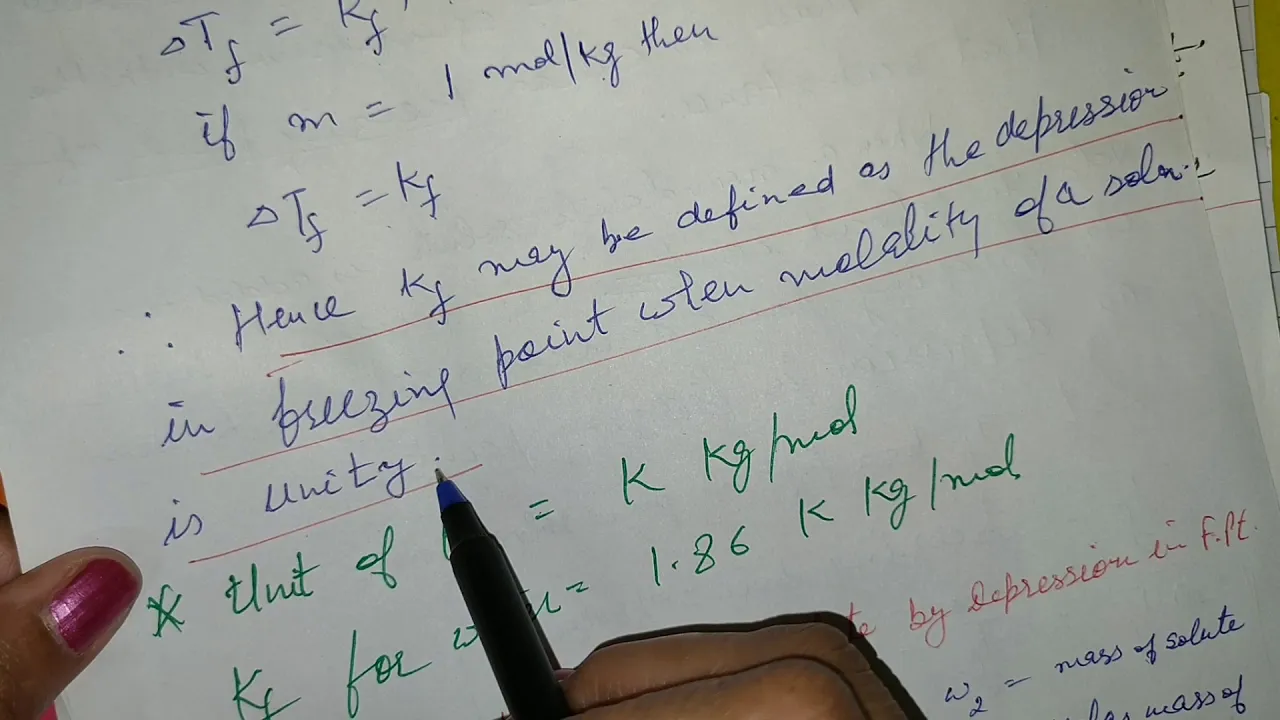 ΔTf = Kf
if m = 1 mol/kg then
ΔTf = Kf
∴ Hence Kf may be defined as the depression
in freezing point when molality of a soln.
is unity.
* Unit of = K kg/mol
Kf for = 1.86 K kg/mol
by Depression in F.Pt.
w2 = mass of solute
mass of